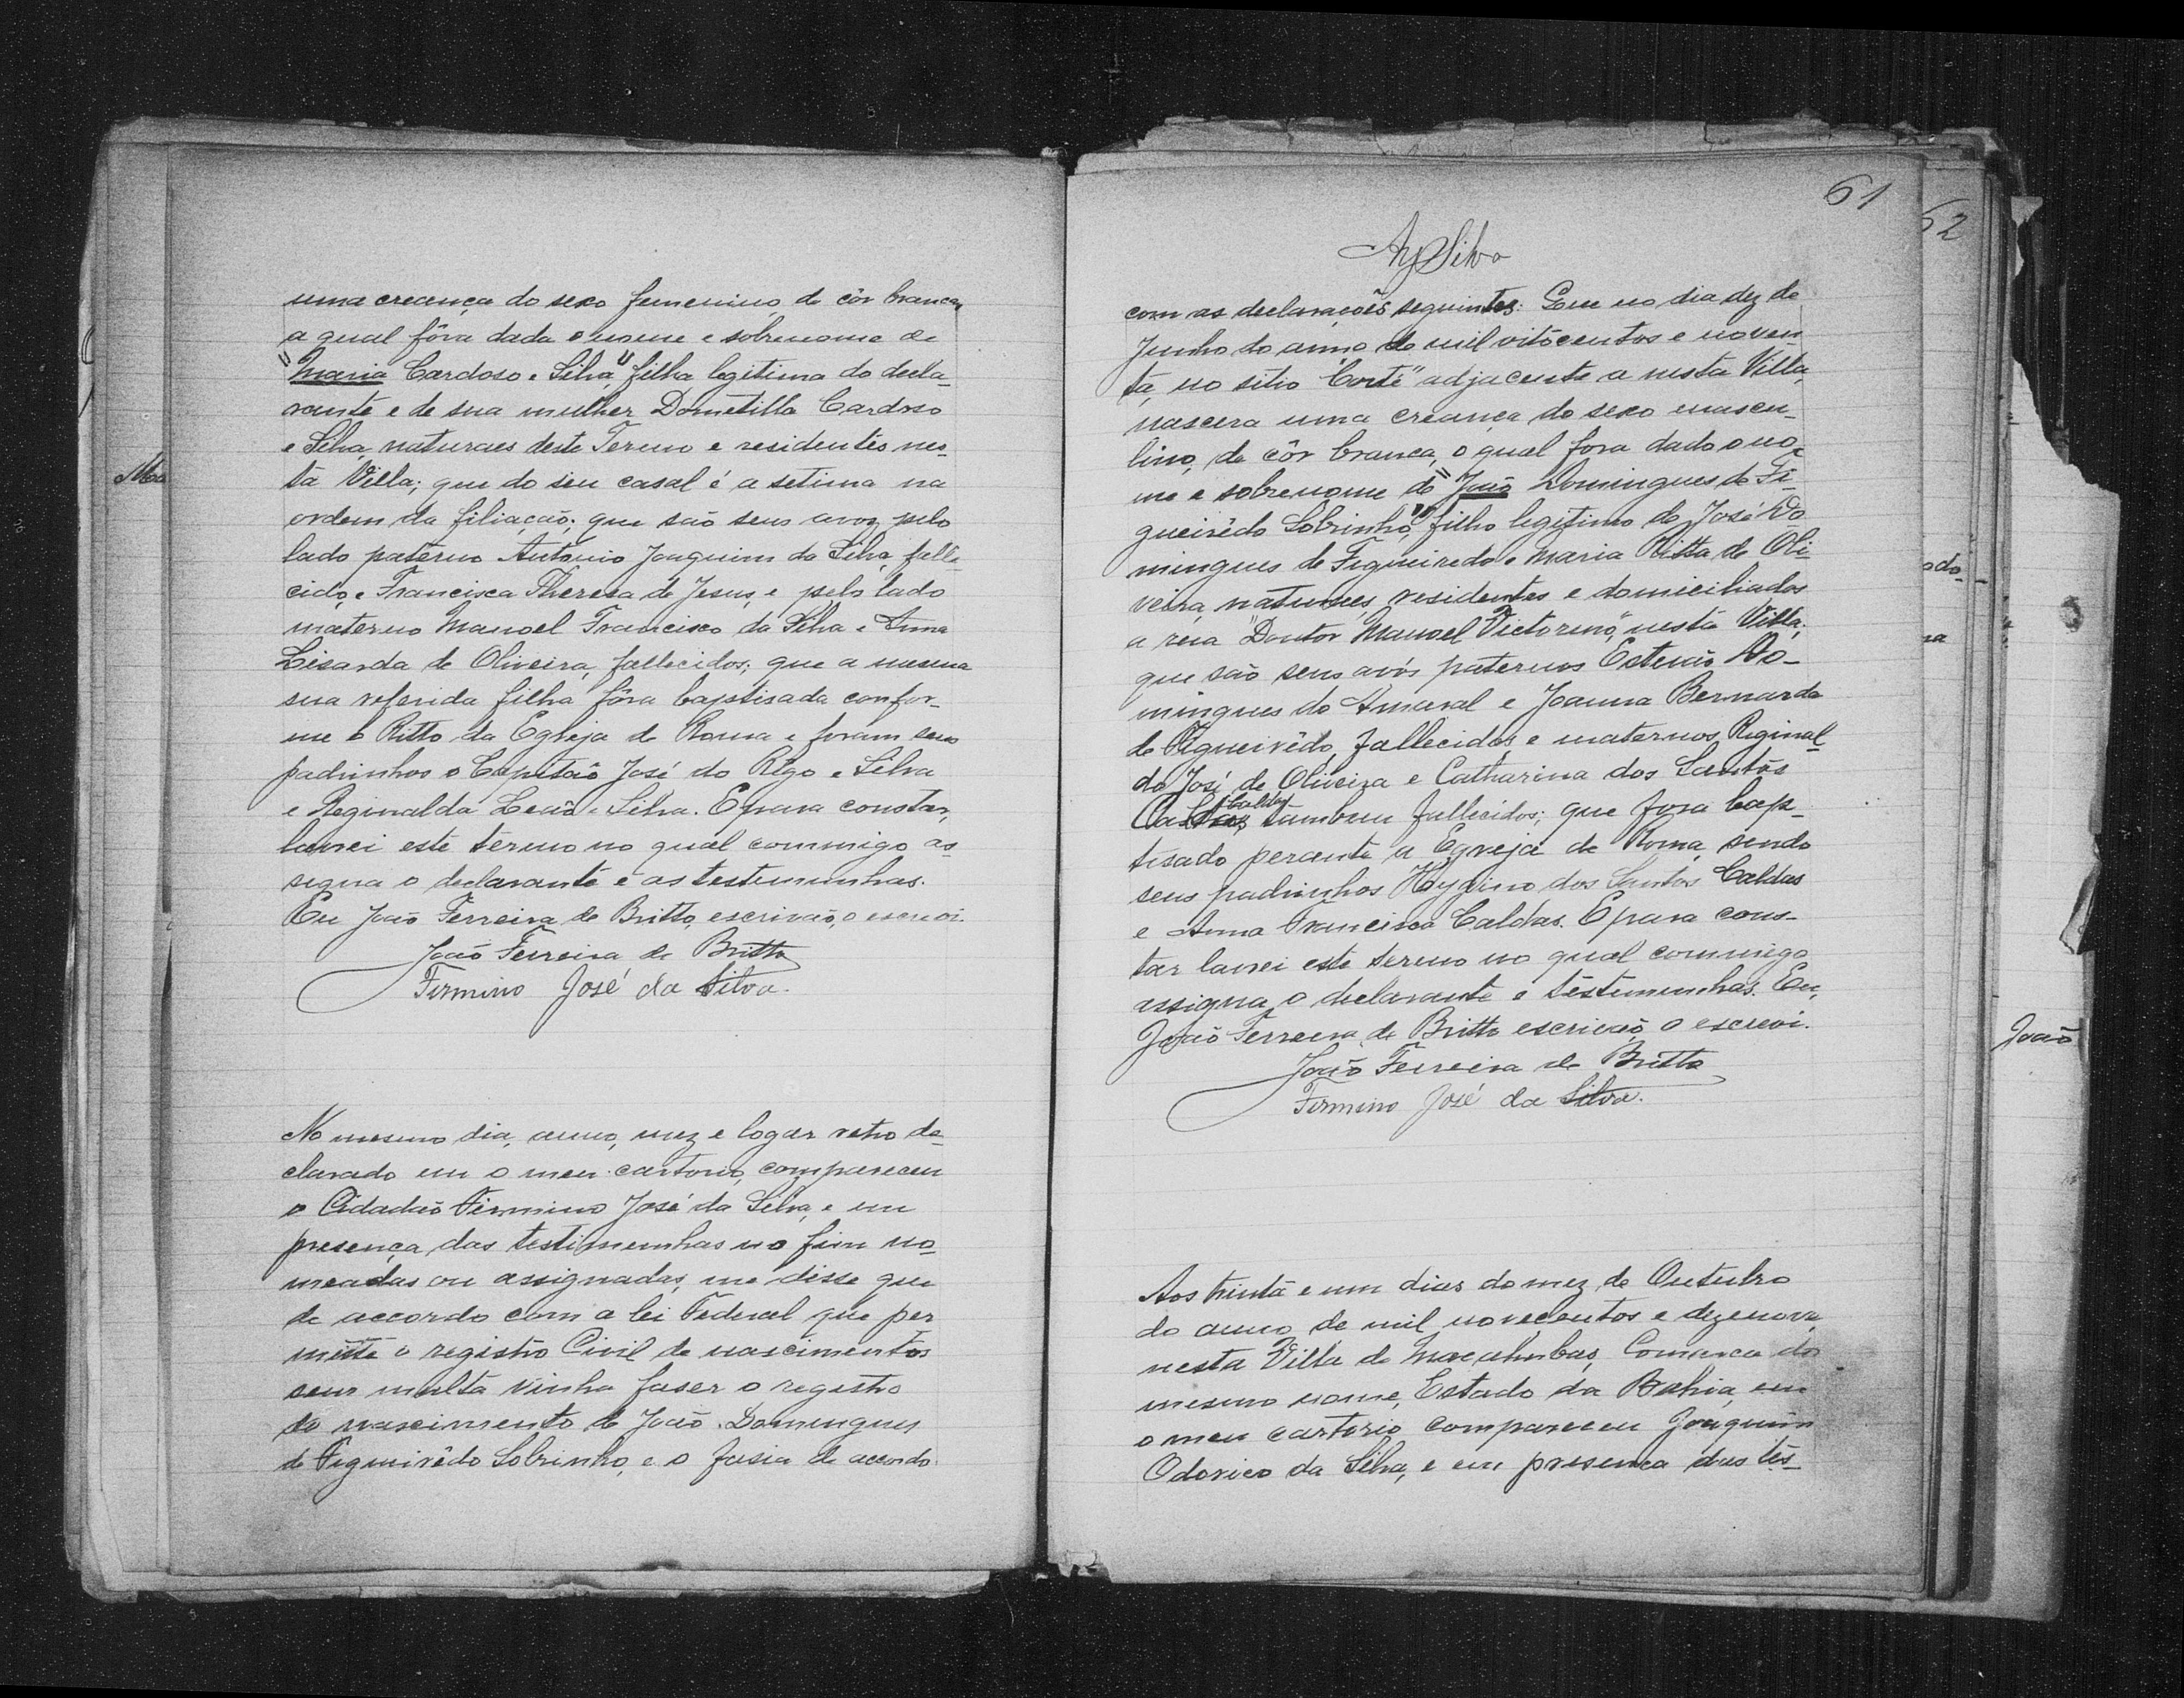 uma creança do sexo femenino, de côr branca,
a qual fôra dada o nome e sobrenome de
"Maria Cardoso e Silva", filha legitima do decla-
rante e de sua mulher Dometilla Cardoso
e Silva, naturaes deste Termo e residentes nes-
ta Villa; que do seu casal é a setima na
ordem da filiação; que são seus avos, pelo
lado paterno Antonio Joaquim da Silva, falle-
cido, e Francisca Thereza de Jesus, e pelo lado
materno Manoel Francisco da Silva e Anna
Lisarda de Oliveira, fallecidos; que a mesma
sua referida filha fôra baptisada confor-
me o Ritto da Egreja de Roma e foram seus
padrinhos o Capitão José do Rêgo e Silva
e Reginalda Leão e Silva. E para constar,
lavrei este termo no qual commigo as-
signa o declarante e as testemunhas.
Eu João Ferreira de Britto, escrivão, o escrevi.
João Ferreira de Britto
Firmino José da Silva.
No mesmo dia, anno, mez e logar retro de-
clarado em o meu cartorio, compareceu
o Cidadão Firmino José da Silva, e em
presença das testimunhas no fim no-
meadas ou assignadas, me disse que
de accordo com a lei Federal que per
mitte o registro Civil de nascimentos
sem multa vinha faser o registro
do nascimento de João Domingues
de Figueirêdo Sobrinho, e o fasia de accordo
Mar
61
62
Silva
com as declarações seguintes: Que no dia dez de
Junho do anno de mil oitocentos e noven-
ta, no sitio "Corte" adjacente a nesta Villa,
nascera uma creança do sexo mascu-
lino, de côr branca, o qual fora dado o no-
me e sobrenome de "João Domingues de Fi-
gueirêdo Sobrinho", filho legitimo de José Do-
mingues de Figueiredo e Maria Ritta de Oli-
veira, naturaes, residentes e domiciliados
a rua "Doutor Manoel Victorino", nesta Villa;
que são seus avós paternos Estevão Do-
mingues do Amaral e Joanna Bernarda
de Figueirêdo, fallecidos, e maternos Reginal-
do José de Oliveira e Catharina dos Santos
Caldas tambem fallecidos; que fora bap-
tisado perante a Egreja de Roma, sendo
seus padrinhos Hygino dos Santos Caldas
e Anna Francisca Caldas. E para cons-
tar lavrei este termo no qual commigo
assigna o declarante e testemunhas. Eu,
João Ferreira de Britto escrivão, o escrevi.
João Ferreira de Britto
Firmino José da Silva.
Aos trinta e um dias do mez de Outubro
do anno de mil novecentos e dezenove,
nesta Villa de Macahubas, Comarca do
mesmo nome, Estado da Bahia, em
o meu cartorio compareceu Joaquim
Odorico da Silva, e em presença das tes-
João